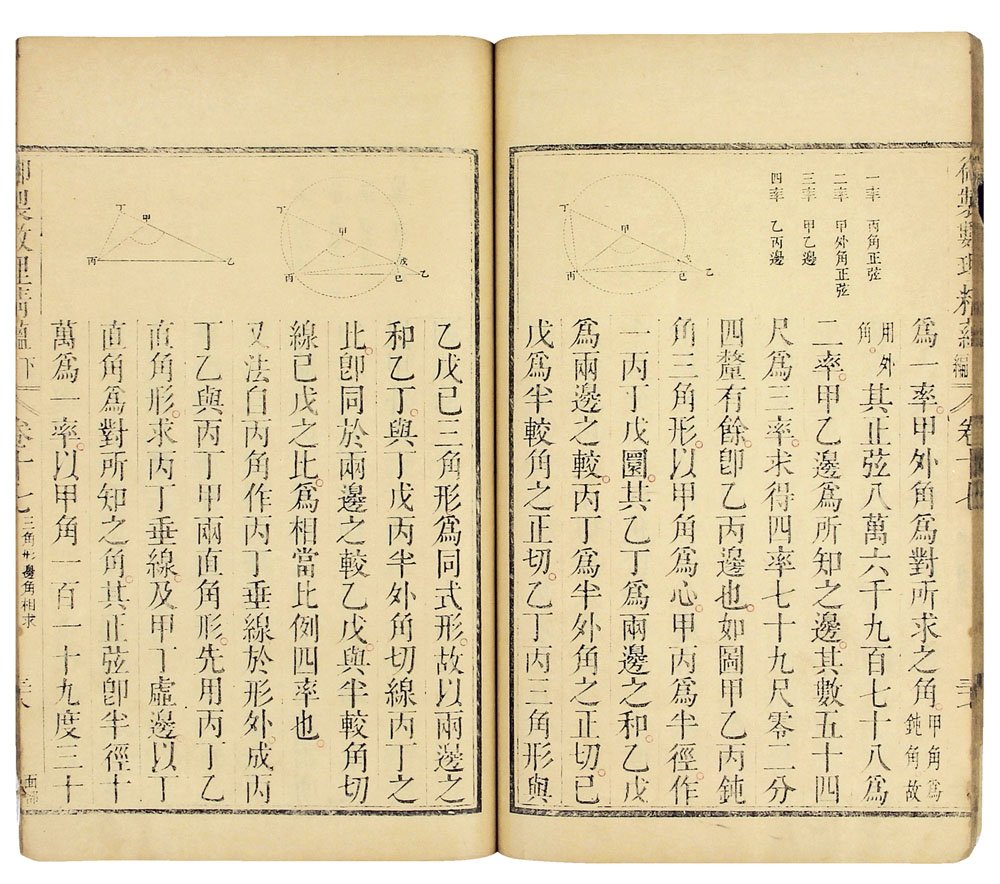 御製數理精蘊
下編
卷十七
一率 丙角正弦
二率 甲外角正弦
三率 甲乙邊
四率 乙丙邊
丁
甲
丙
戊
己
乙
爲一率甲外角爲對所求之角甲角爲鈍角故
用外角其正弦八萬六千九百七十八爲
二率甲乙邊爲所知之邊其數五十四
尺爲三率求得四率七十九尺零二分
四釐有餘卽乙丙邊也如圖甲乙丙鈍
角三角形以甲角爲心甲丙爲半徑作
一丙丁戊圜其乙丁爲兩邊之和乙戊
爲兩邊之較丙丁爲半外角之正切己
戊爲半較角之正切乙丁丙三角形與
丁
甲
丙
戊
己
乙
丁
甲
丙
乙
乙戊己三角形爲同式形故以兩邊之
和乙丁與丁戊丙半外角切線丙丁之
比卽同於兩邊之較乙戊與半較角切
線己戊之比爲相當比例四率也
又法自丙角作丙丁垂線於形外成丙
丁乙與丙丁甲兩直角形先用丙丁乙
直角形求丙丁垂線及甲丁虛邊以丁
直角爲對所知之角其正弦卽半徑十
萬爲一率以甲角一百一十九度三十
御製數理精蘊
下
卷十七
三角形邊角相求